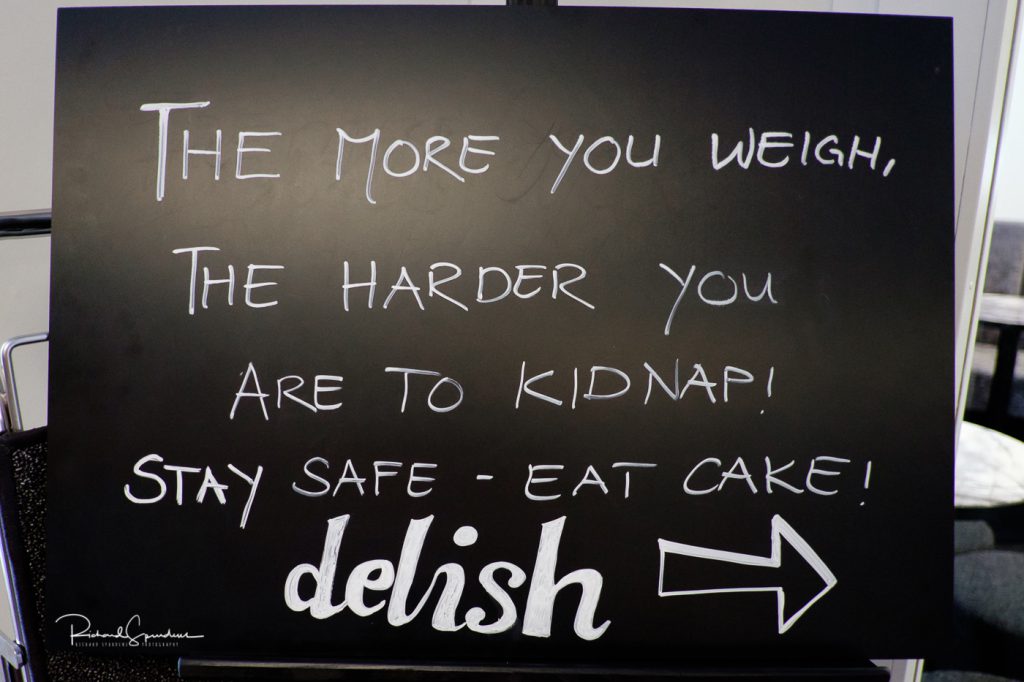 THE MORE YOU WEIGH,
THE HARDER YOU
ARE TO KIDNAP!
STAY SAFE - EAT CAKE!
delish
Richard Spurdens
RICHARD SPURDENS PHOTOGRAPHY